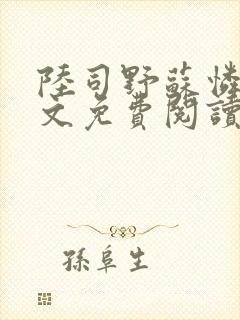 陸司野蘇憐
文免費閱讀
孫阜生